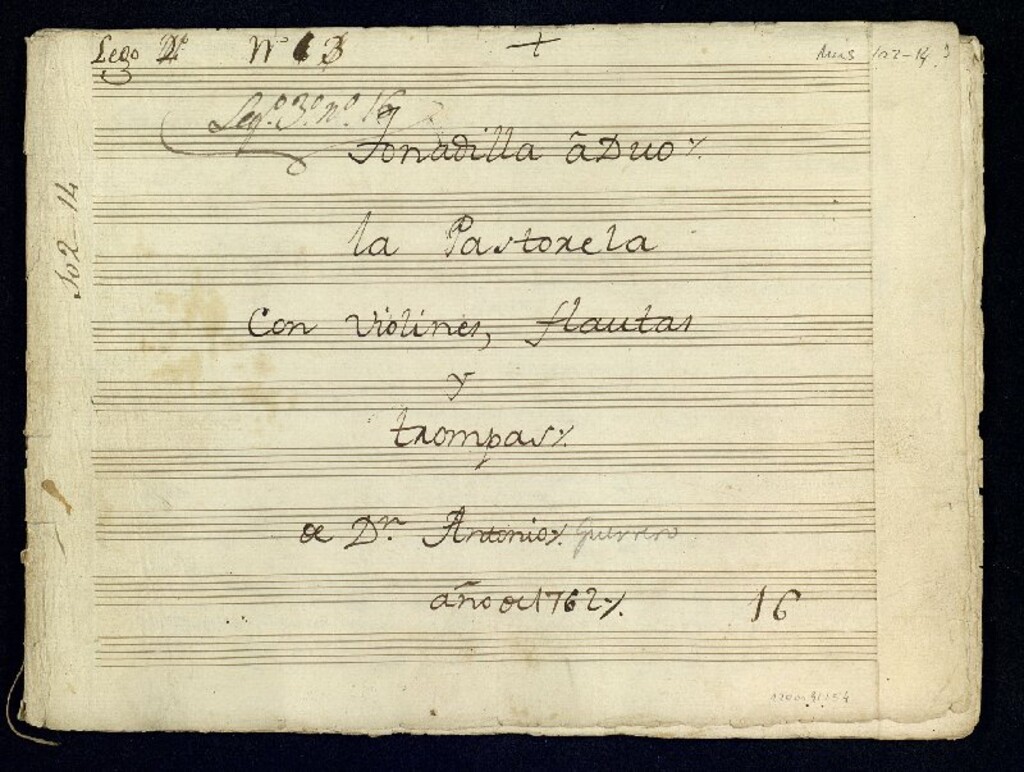 Lego 2º Nº 13
Mus 102-14
Legº. 3º. nº. 16
Tonadilla â Duo
la Pastorela
Con Violines, flautas
y
trompas
de Dn. Antonio Guerrero
año de 1762
16
102-14